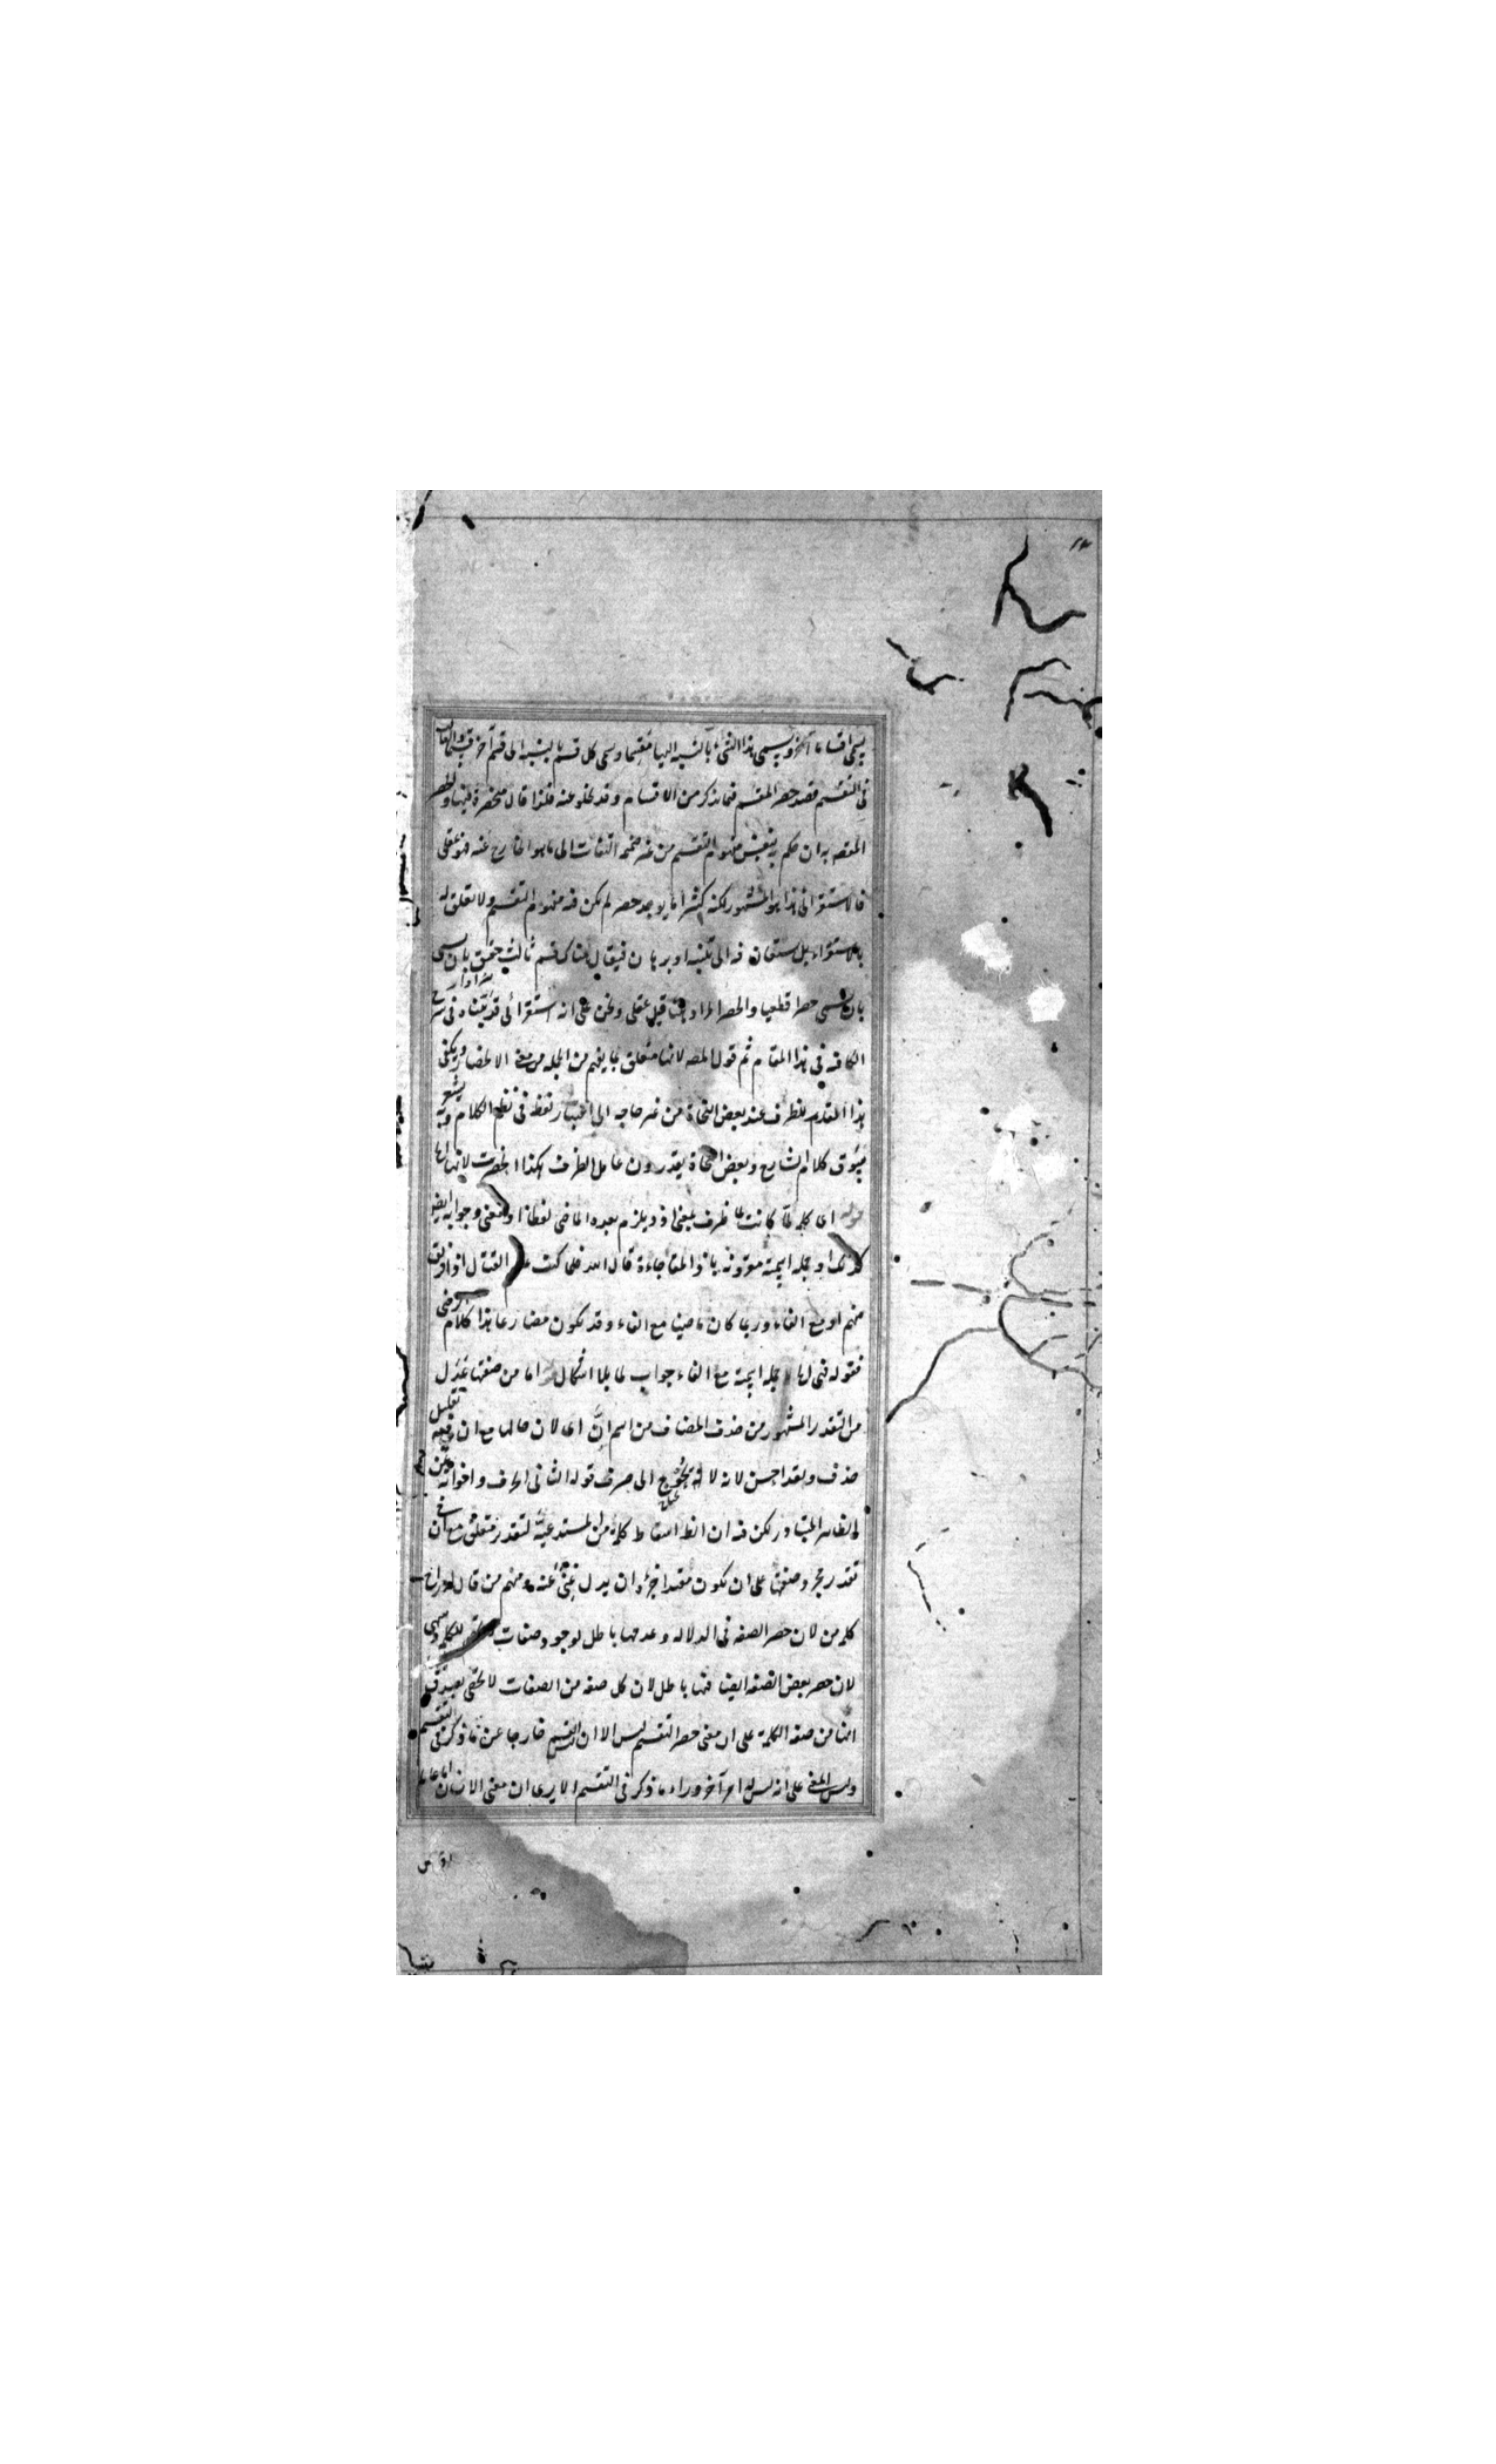 يسمى اقساما آخر ويسمى هذا الشيء بالنسبة اليها مقسما ويسمى كل قسم بالنسبة الى قسم آخر قسيما
في التقسيم قصد حصر المقسم فيما يذكر من الاقسام وقد يخلو عنه فلذا قال منحصرة فيها والحصر
ان حكم به مفهوم التقسيم من غير ضميمة التفات الى ما هو الخارج عنه فهو عقلي
فالاستقرائي هذا هو المشهور لكنه كثيرا ما يوجد حصر لم يكن فيه مفهوم التقسيم ولا تعلق له
بالاستقراء بل يستعان فيه الى تنبيه او برهان فيقال هناك قسم ثالث حقيق بان يسمى
بان يسمى حصرا قطعيا والحصر المراد هنا قيل عقلي ونحن على انه استقرائي قد بيناه في شرح
الكافية في هذا المقام ثم قول المصه لانها متعلق بما يفهم من الجملة من معنى الانحصار ويكفي
هذا المقدم للظرف عند بعض النحاة من غير حاجة الى اعتبار لفظه في نظم الكلام وبه يشعر
سوق كلام الشارح وبعض النحاة يقدرون عامل الظرف هكذا انحصرت لانها اما
قوله اي كلمة لما كانت لما ظرف بمعنى اذ ويلزم بعده الماضي لفظا او معنى وجوابه ايضا
كذلك او جملة اسمية مقرونة باذا المفاجاءة قال الله فلما كتب عليهم القتال اذا فريق
منهم او مع الفاء وربما كان ماضيا مع الفاء وقد يكون مضارعا هذا كلام
فقوله فهي اما جملة اسمية مع الفاء جواب لما بلا اشكال اما من صفتها عدل
من التقدير المشهور من حذف المضاف من اسم ان اي لان حالها مع ان فيه تقليل
حذف وبعد احسن لانه لا يحوج الى صرف قوله الثاني الحرف واخواته عن
الظاهر المتبادر لكن فيه ان اسقاط كلمة من المستدعية لتقدير متعلق مع ان في
تقدير مجرد صفتها على ان يكون مبتدا خبره ان يدل غنى عنه ومنهم من قال
كلمة من لان حصر الصفة في الدلالة وعدمها باطل لوجود صفات للكلمة وسهى
لان حصر بعض الصفة ايضا فيها باطل لان كل صفة من الصفات لا يخفى
انها من صفة الكلمة على ان معنى حصر التقسيم ليس الا ان ليس قسم خارجا عن ما ذكر في التقسيم
وليس المعنى على انه ليس له امر آخر وراء ما ذكر في التقسيم الا يرى ان معنى الانسان اما عالم